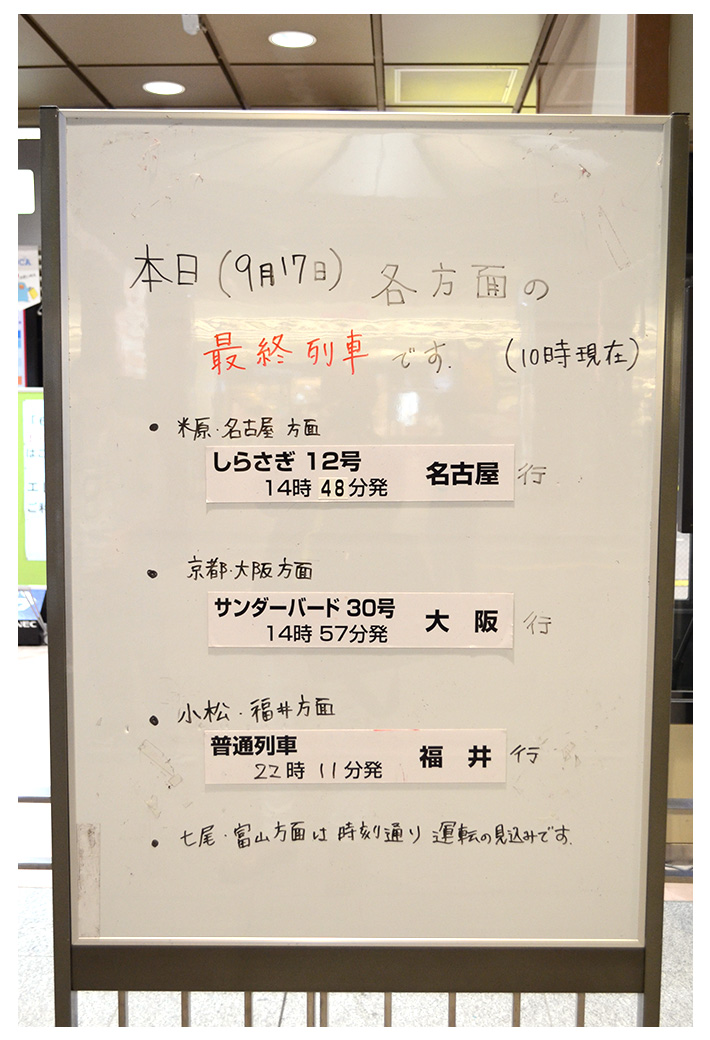 本日(9月17日) 各方面の
最終列車 です. (10時現在)
• 米原・名古屋 方面
しらさぎ 12号
14時 48分発 名古屋 行
• 京都・大阪方面
サンダーバード 30号
14時 57分発 大阪 行
• 小松・福井方面
普通列車
22時 11分発 福井 行
• 七尾・富山方面は 時刻通り 運転の見込みです.
NEC